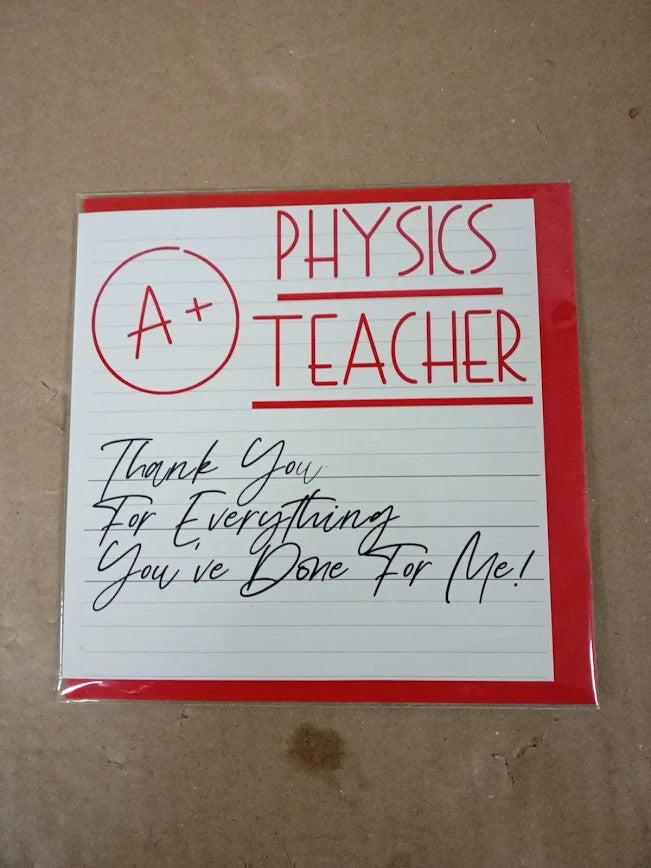 A+
PHYSICS
TEACHER
Thank You
For Everything
You've Done For Me!